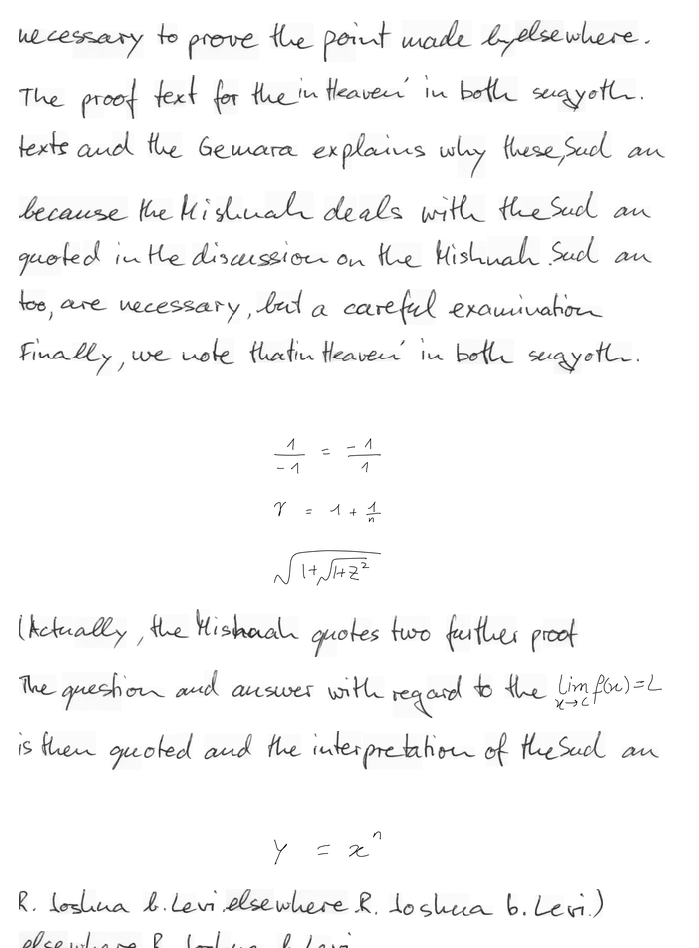 necessary to prove the point made by elsewhere.
The proof text for the in Heaven' in both sugyoth.
texts and the Gemara explains why these, Sud an
because the Mishnah deals with the Sud an
quoted in the discussion on the Mishnah. Sud an
too, are necessary, but a careful examination
Finally, we note that in Heaven' in both sugyoth.
\frac{1}{-1} = \frac{-1}{1}
\gamma = 1 + \frac{1}{n}
\sqrt{1+\sqrt{1+z^2}}
(Actually, the Mishnah quotes two further proof
The question and answer with regard to the \lim_{x \to c} f(x) = L
is then quoted and the interpretation of the Sud an
y = x^n
R. Joshua b. Levi elsewhere R. Joshua b. Levi.)
elsewhere R. Joshua b. Levi